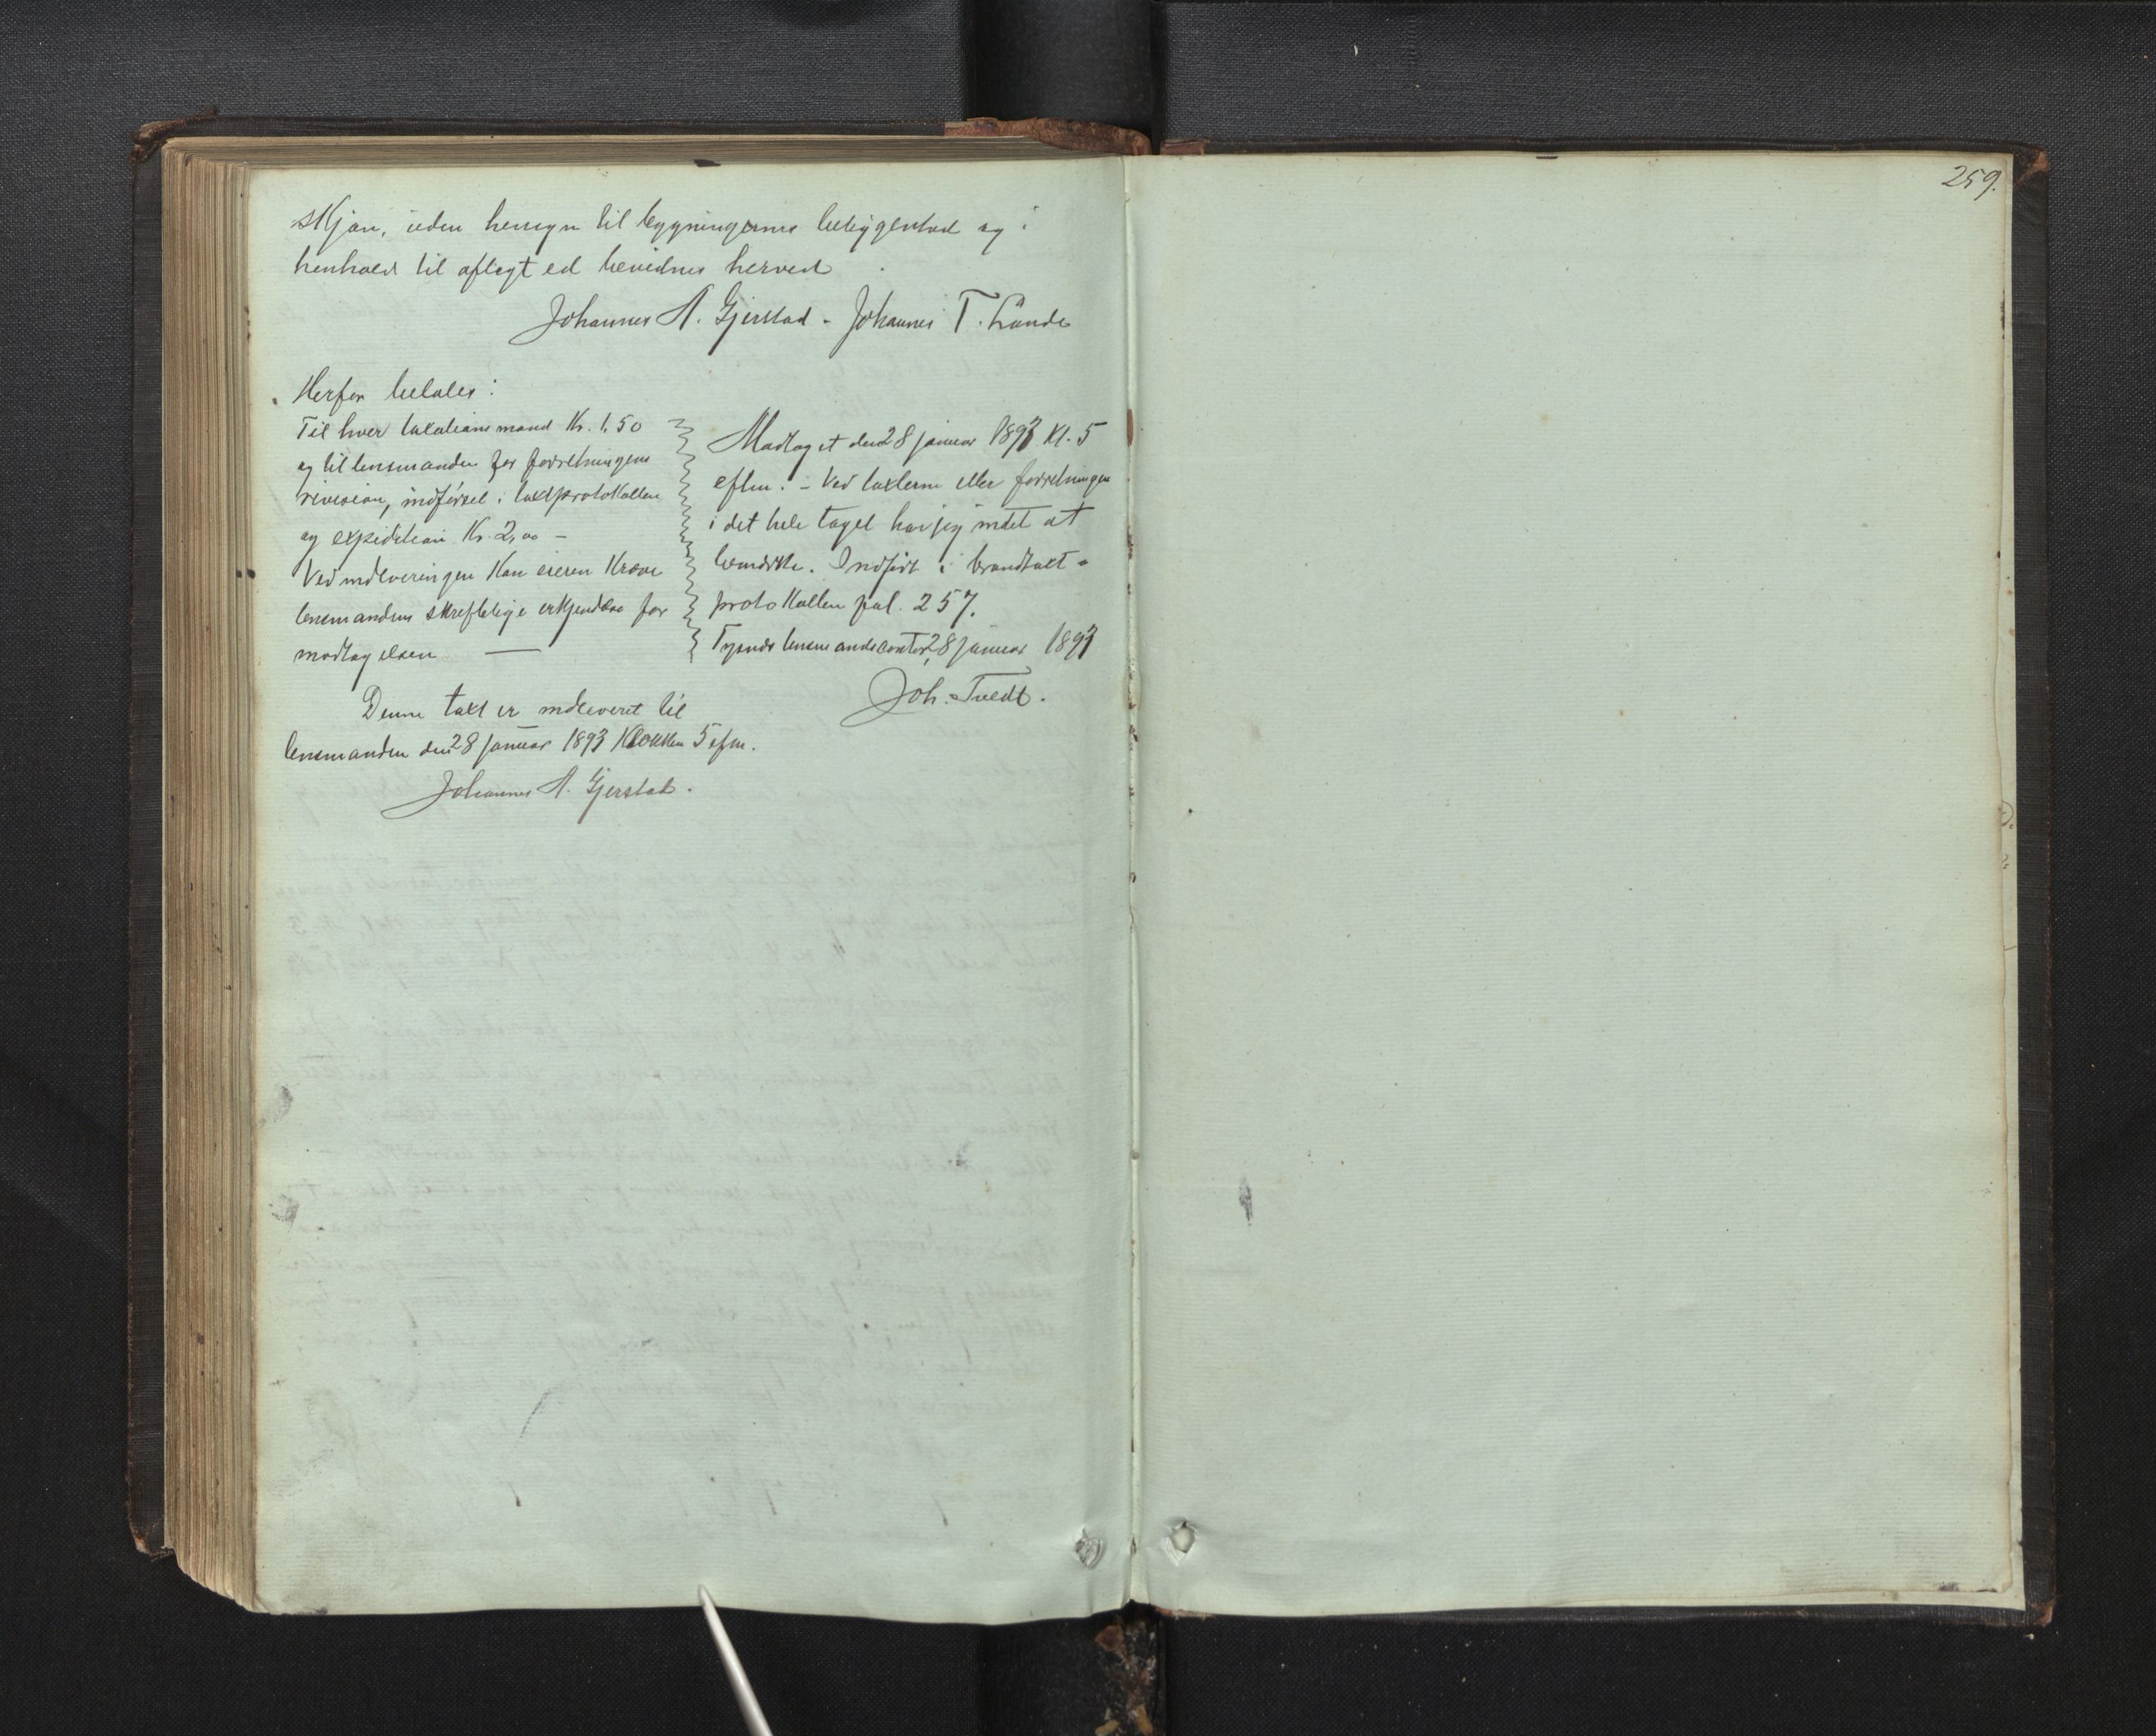 skjøn, uden hensyn til bygningernes beliggenhed og i
henhold til aflagt ed bevidnes herved
Johannes A. Gjerstad - Johannes T. Lunde
Herfor betales:
Til hver taxationsmand Kr. 1,50
og til lensmanden for forretningens
revision, indførsel i taxtprotokollen
og expedition Kr. 2,00 -
Ved indleveringen kan eieren kræve
lensmandens skreftlige erkjendelse for
modtagelsen —
Denne taxt er indleveret til
lensmanden den 28 januar 1893 Klokken 5 efm.
Johannes A. Gjerstad.
Modtaget den 28 januar 1893 Kl. 5
eftm. - Ved taxterne eller forretningen
i det hele taget har jeg intet at
bemærke. Indført i brandtaxt-
protokollen pal. 257.
Tysnes lensmandscontor, 28 januar 1893
Joh. Tvedt.
259.